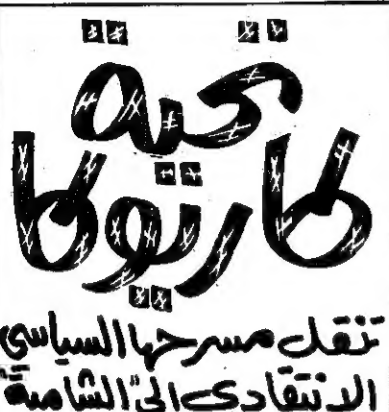 تحية
كاريوكا
تنقل مسرحها السياسي
الانتقادى الى "الشامية"